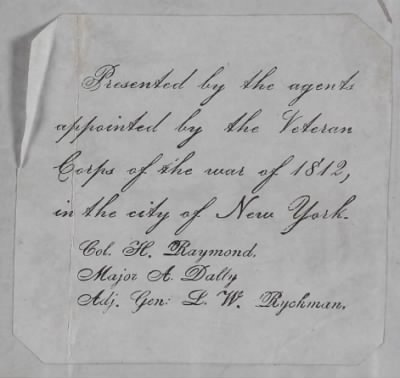 Presented by the agents
appointed by the Veteran
Corps of the war of 1812,
in the city of New York.
Col. H. Raymond,
Major A. Dally
Adj. Gen: L. W. Ryckman.